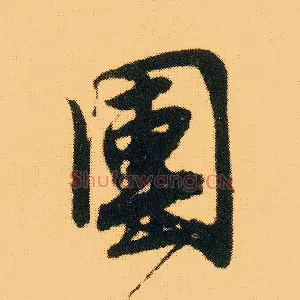 園
Shufawang.CN